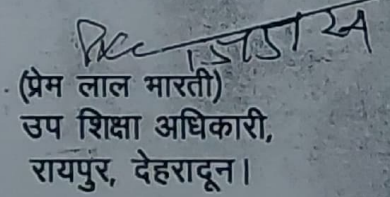 (प्रेम लाल भारती)
उप शिक्षा अधिकारी,
रायपुर, देहरादून।